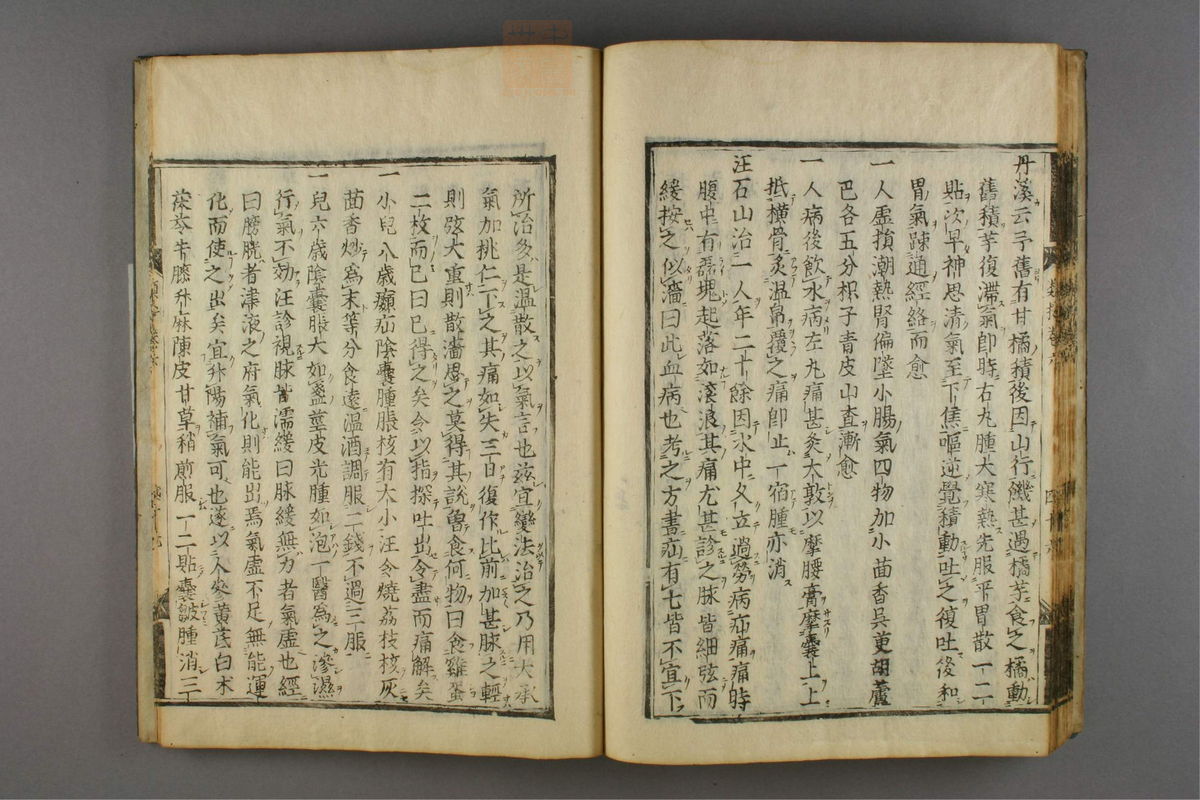 丹溪云予舊有甘橘積後因山行饑甚過橘芋食之橘動
舊積芋復滯氣即時右丸腫大寒熱先服平胃散一二
貼次早神思清氣至下焦嘔逆覺積動吐之復吐後和
胃氣疎通經絡而愈
一人虛損潮熱腎偏墜小腸氣四物加小茴香吳茰胡蘆
巴各五分枳子青皮山査漸愈
一人病後飲水病左丸痛甚灸大敦以摩腰膏摩囊上上
抵橫骨炙温帛覆之痛即止一宿腫亦消
汪石山治一人年二十餘因水中久立過勞病疝痛痛時
腹中有磊塊起落如滾浪其痛尤甚診之脉皆細弦而
緩按之似濇曰此血病也考之方書疝有七皆不宜下
所治多是温散之以氣言也兹宜變法治之乃用大承
氣加桃仁下之其痛如失三日復作比前加甚脉之輕
則弦大重則散濇思之莫得其說魯食何物曰食雞蛋
二枚而已曰已得之矣令以指探吐出令盡而痛解矣
一小兒八歲癩疝陰囊腫脹核有大小汪令燒荔枝核灰
茴香炒為末等分食遠温酒調服二錢不過三服
一兒六歲陰囊脹大如盞莖皮光腫如泡一醫為之滲濕
行氣不効汪診視脉皆濡緩曰脉緩無力者氣虛也經
曰膀胱者津液之府氣化則能出焉氣虛不足無能運
化而使之出矣宜升陽補氣可也遂以人參黃茋白朮
茯苓牛膝升麻陳皮甘草稍煎服一二貼囊皺腫消三